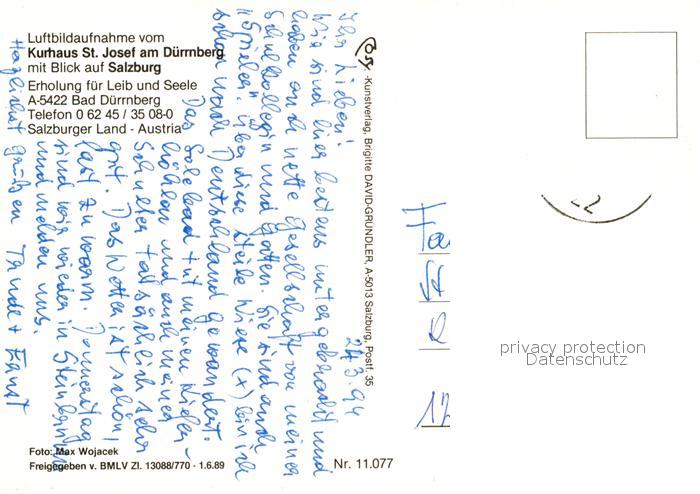 Luftbildaufnahme vom
Kurhaus St. Josef am Dürrnberg
mit Blick auf Salzburg
Erholung für Leib und Seele
A-5422 Bad Dürrnberg
Telefon 0 62 45 / 35 08-0
Salzburger Land - Austria
24.3.94
Ihr Lieben!
Wir sind hier bestens untergebracht und
haben auch nette Gesellschaft von meiner
Schulkollegin und Gatten. Sie sind auch
"Spieler". Über diese steile Wiese (x) bin ich
schon nach Deutschland gewandert.
Das Solebad tut meinen Kiefer-
höhlen und auch meiner
Schulter tatsächlich sehr
gut. Das Wetter ist schön,
fast zu warm. Donnerstag
sind wir wieder in Steinbrunn
und melden uns.
Herzlichst grüßen Trude + Ernst
-Kunstverlag, Brigitte DAVID-GRÜNDLER, A-5013 Salzburg, Postf. 35
Fa
St
12
-2
privacy protection
Datenschutz
Foto: Max Wojacek
Freigegeben v. BMLV Zl. 13088/770 - 1.6.89
Nr. 11.077